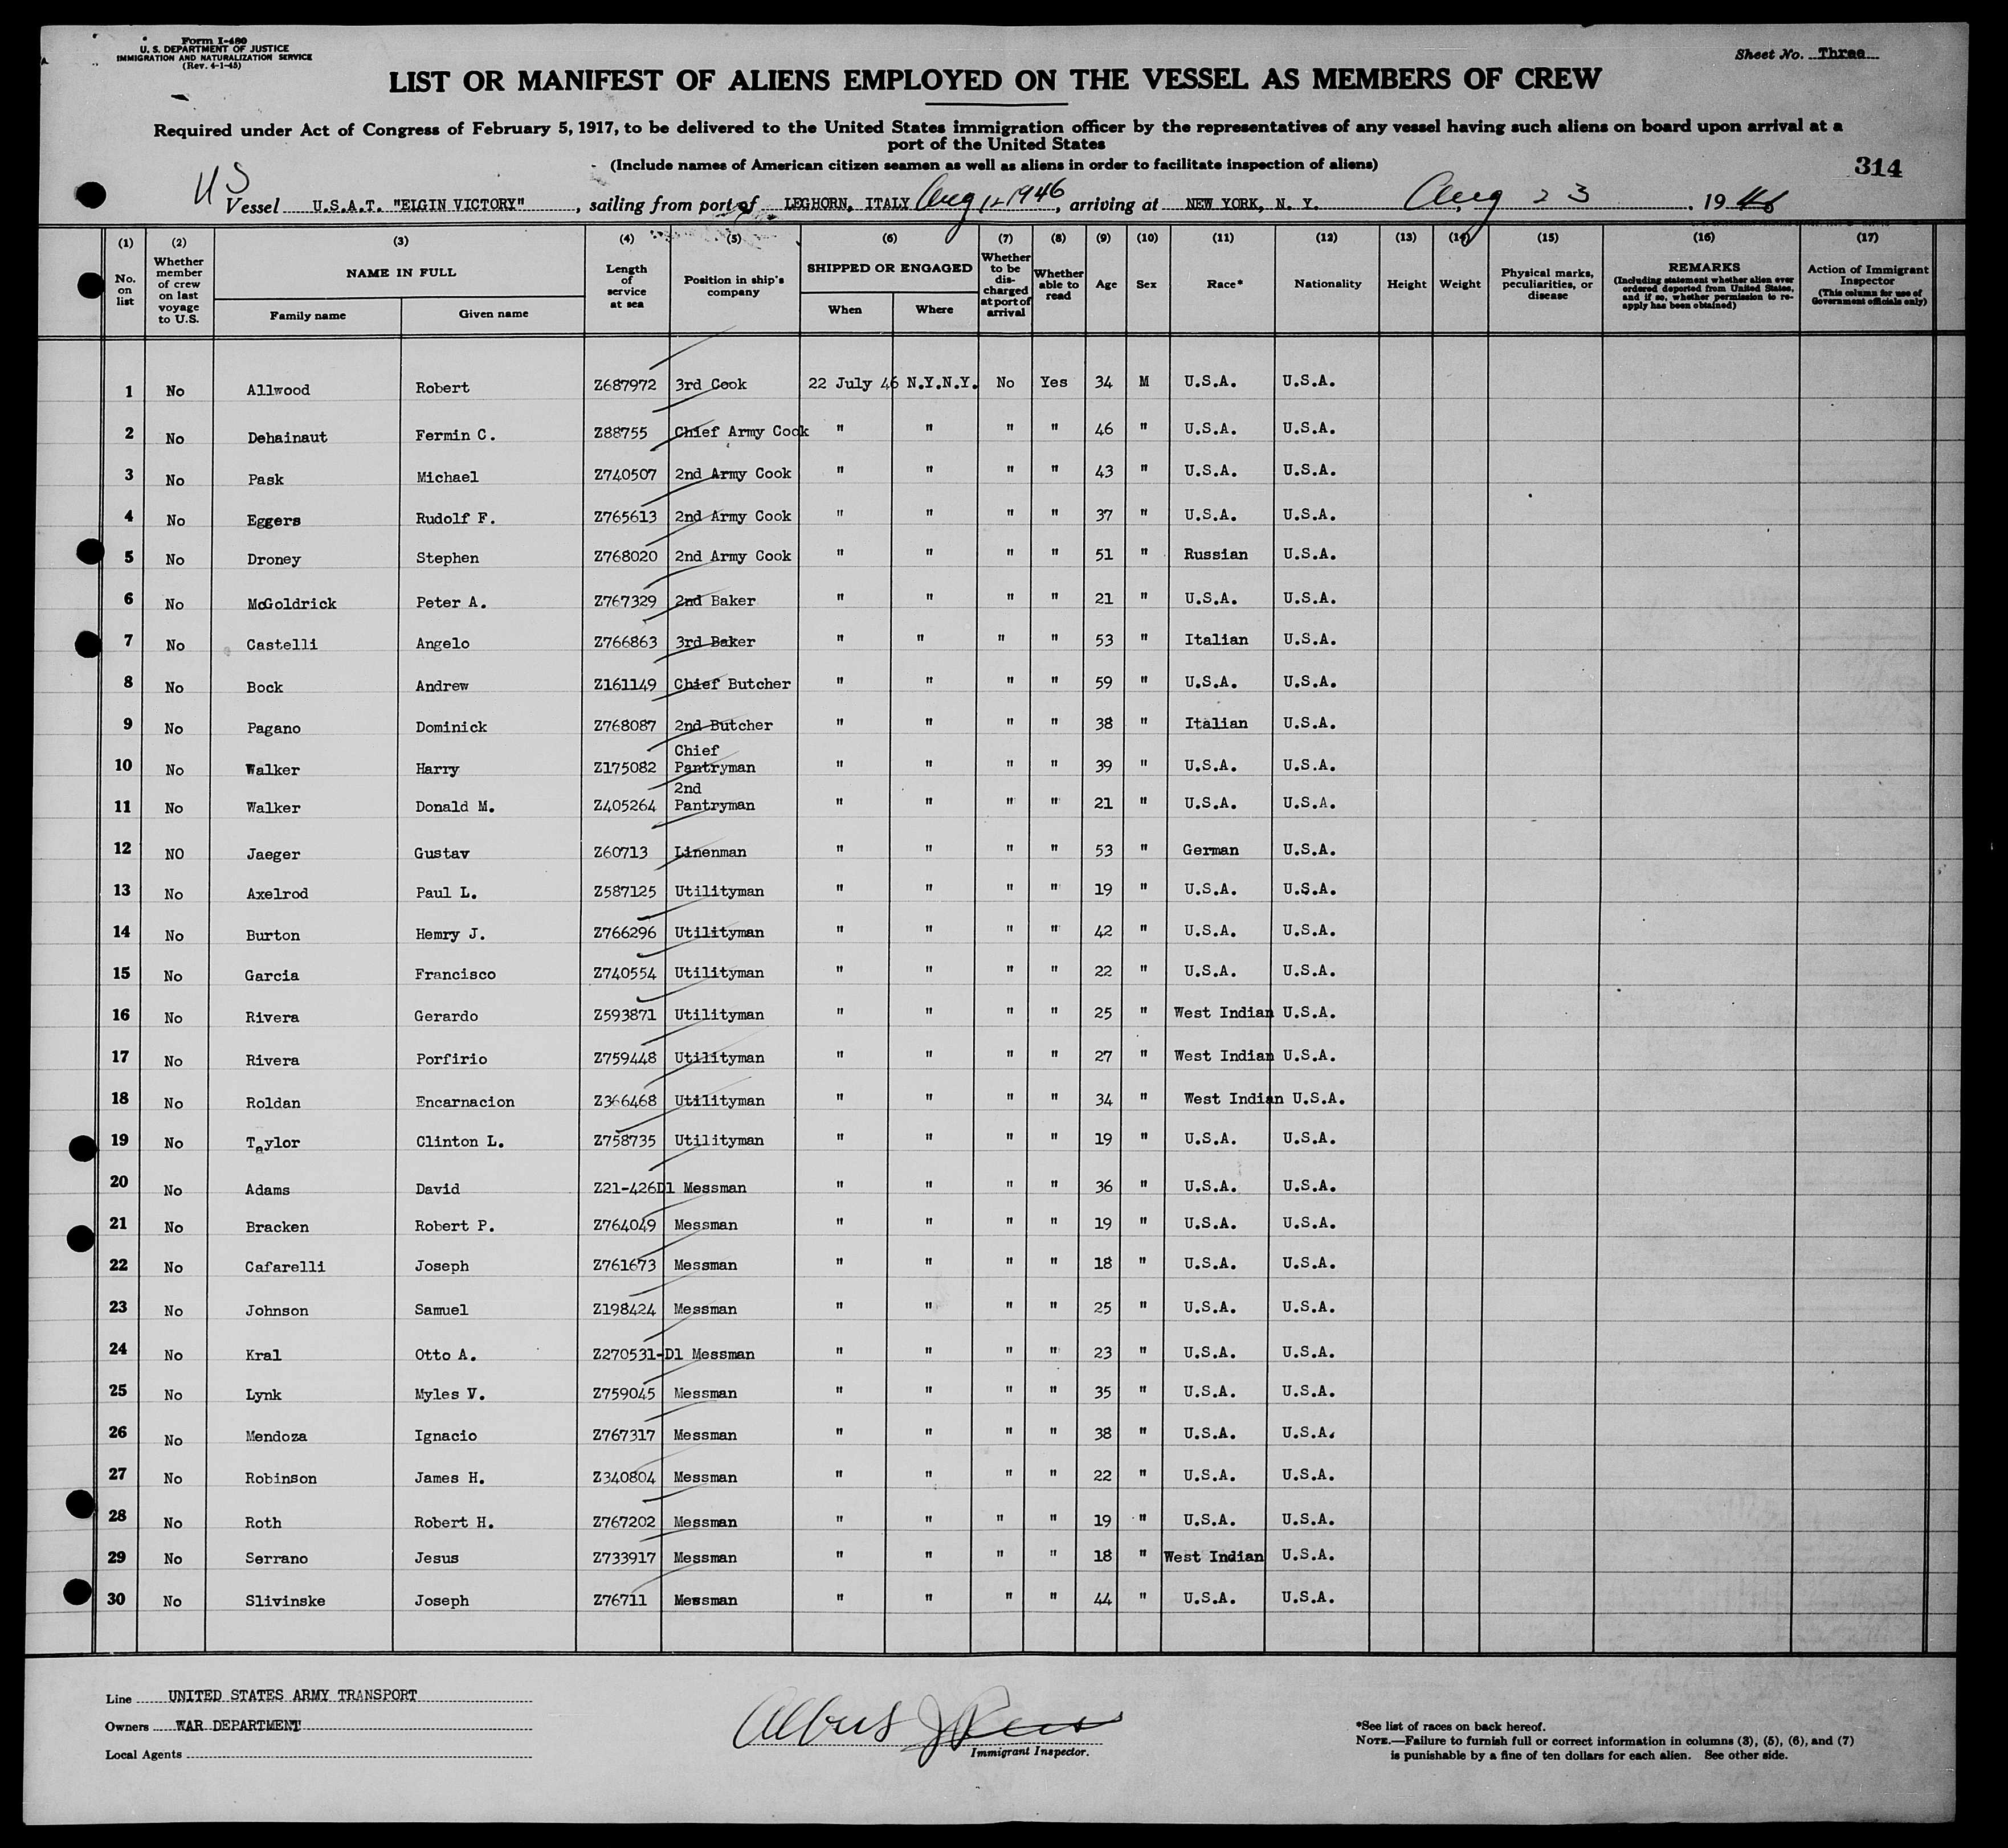 Form I-480
U. S. DEPARTMENT OF JUSTICE
IMMIGRATION AND NATURALIZATION SERVICE
(Rev. 4-1-45)
Sheet No. Three
LIST OR MANIFEST OF ALIENS EMPLOYED ON THE VESSEL AS MEMBERS OF CREW
Required under Act of Congress of February 5, 1917, to be delivered to the United States immigration officer by the representatives of any vessel having such aliens on board upon arrival at a
port of the United States
(Include names of American citizen seamen as well as aliens in order to facilitate inspection of aliens)
314
US
Vessel U.S.A.T. "ELGIN VICTORY", sailing from port of LEGHORN, ITALY Aug 12 1946, arriving at NEW YORK, N. Y. Aug 23, 1946
(1) (2) (3) (4) (5) (6) (7) (8) (9) (10) (11) (12) (13) (14) (15) (16) (17)
No. on list
Whether member of crew on last voyage to U.S.
NAME IN FULL
Family name
Given name
Length of service at sea
Position in ship's company
SHIPPED OR ENGAGED
When
Where
Whether to be discharged at port of arrival
Whether able to read
Age
Sex
Race*
Nationality
Height
Weight
Physical marks, peculiarities, or disease
REMARKS
(Including statement whether alien ever ordered deported from United States, and if so, whether permission to re-apply has been obtained)
Action of Immigrant Inspector
(This column for use of Government officials only)
1 No Allwood Robert Z687972 3rd Cook 22 July 46 N.Y.N.Y. No Yes 34 M U.S.A. U.S.A.
2 No Dehainaut Fermin C. Z88755 Chief Army Cook " " " " 46 " U.S.A. U.S.A.
3 No Pask Michael Z740507 2nd Army Cook " " " " 43 " U.S.A. U.S.A.
4 No Eggers Rudolf F. Z765613 2nd Army Cook " " " " 37 " U.S.A. U.S.A.
5 No Droney Stephen Z768020 2nd Army Cook " " " " 51 " Russian U.S.A.
6 No McGoldrick Peter A. Z767329 2nd Baker " " " " 21 " U.S.A. U.S.A.
7 No Castelli Angelo Z766863 3rd Baker " " " " 53 " Italian U.S.A.
8 No Bock Andrew Z161149 Chief Butcher " " " " 59 " U.S.A. U.S.A.
9 No Pagano Dominick Z768087 2nd Butcher " " " " 38 " Italian U.S.A.
10 No Walker Harry Z175082 Chief Pantryman " " " " 39 " U.S.A. U.S.A.
11 No Walker Donald M. Z405264 2nd Pantryman " " " " 21 " U.S.A. U.S.A.
12 NO Jaeger Gustav Z60713 Linenman " " " " 53 " German U.S.A.
13 No Axelrod Paul L. Z587125 Utilityman " " " " 19 " U.S.A. U.S.A.
14 No Burton Hemry J. Z766296 Utilityman " " " " 42 " U.S.A. U.S.A.
15 No Garcia Francisco Z740554 Utilityman " " " " 22 " U.S.A. U.S.A.
16 No Rivera Gerardo Z593871 Utilityman " " " " 25 " West Indian U.S.A.
17 No Rivera Porfirio Z759448 Utilityman " " " " 27 " West Indian U.S.A.
18 No Roldan Encarnacion Z366468 Utilityman " " " " 34 " West Indian U.S.A.
19 No Taylor Clinton L. Z758735 Utilityman " " " " 19 " U.S.A. U.S.A.
20 No Adams David Z21-426D1 Messman " " " " 36 " U.S.A. U.S.A.
21 No Bracken Robert P. Z764049 Messman " " " " 19 " U.S.A. U.S.A.
22 No Cafarelli Joseph Z761673 Messman " " " " 18 " U.S.A. U.S.A.
23 No Johnson Samuel Z198424 Messman " " " " 25 " U.S.A. U.S.A.
24 No Kral Otto A. Z270531-D1 Messman " " " " 23 " U.S.A. U.S.A.
25 No Lynk Myles V. Z759045 Messman " " " " 35 " U.S.A. U.S.A.
26 No Mendoza Ignacio Z767317 Messman " " " " 38 " U.S.A. U.S.A.
27 No Robinson James H. Z340804 Messman " " " " 22 " U.S.A. U.S.A.
28 No Roth Robert H. Z767202 Messman " " " " 19 " U.S.A. U.S.A.
29 No Serrano Jesus Z733917 Messman " " " " 18 " West Indian U.S.A.
30 No Slivinske Joseph Z76711 Messman " " " " 44 " U.S.A. U.S.A.
Line UNITED STATES ARMY TRANSPORT
Owners WAR DEPARTMENT
Local Agents
Immigrant Inspector.
*See list of races on back hereof.
NOTE.—Failure to furnish full or correct information in columns (3), (5), (6), and (7)
is punishable by a fine of ten dollars for each alien. See other side.